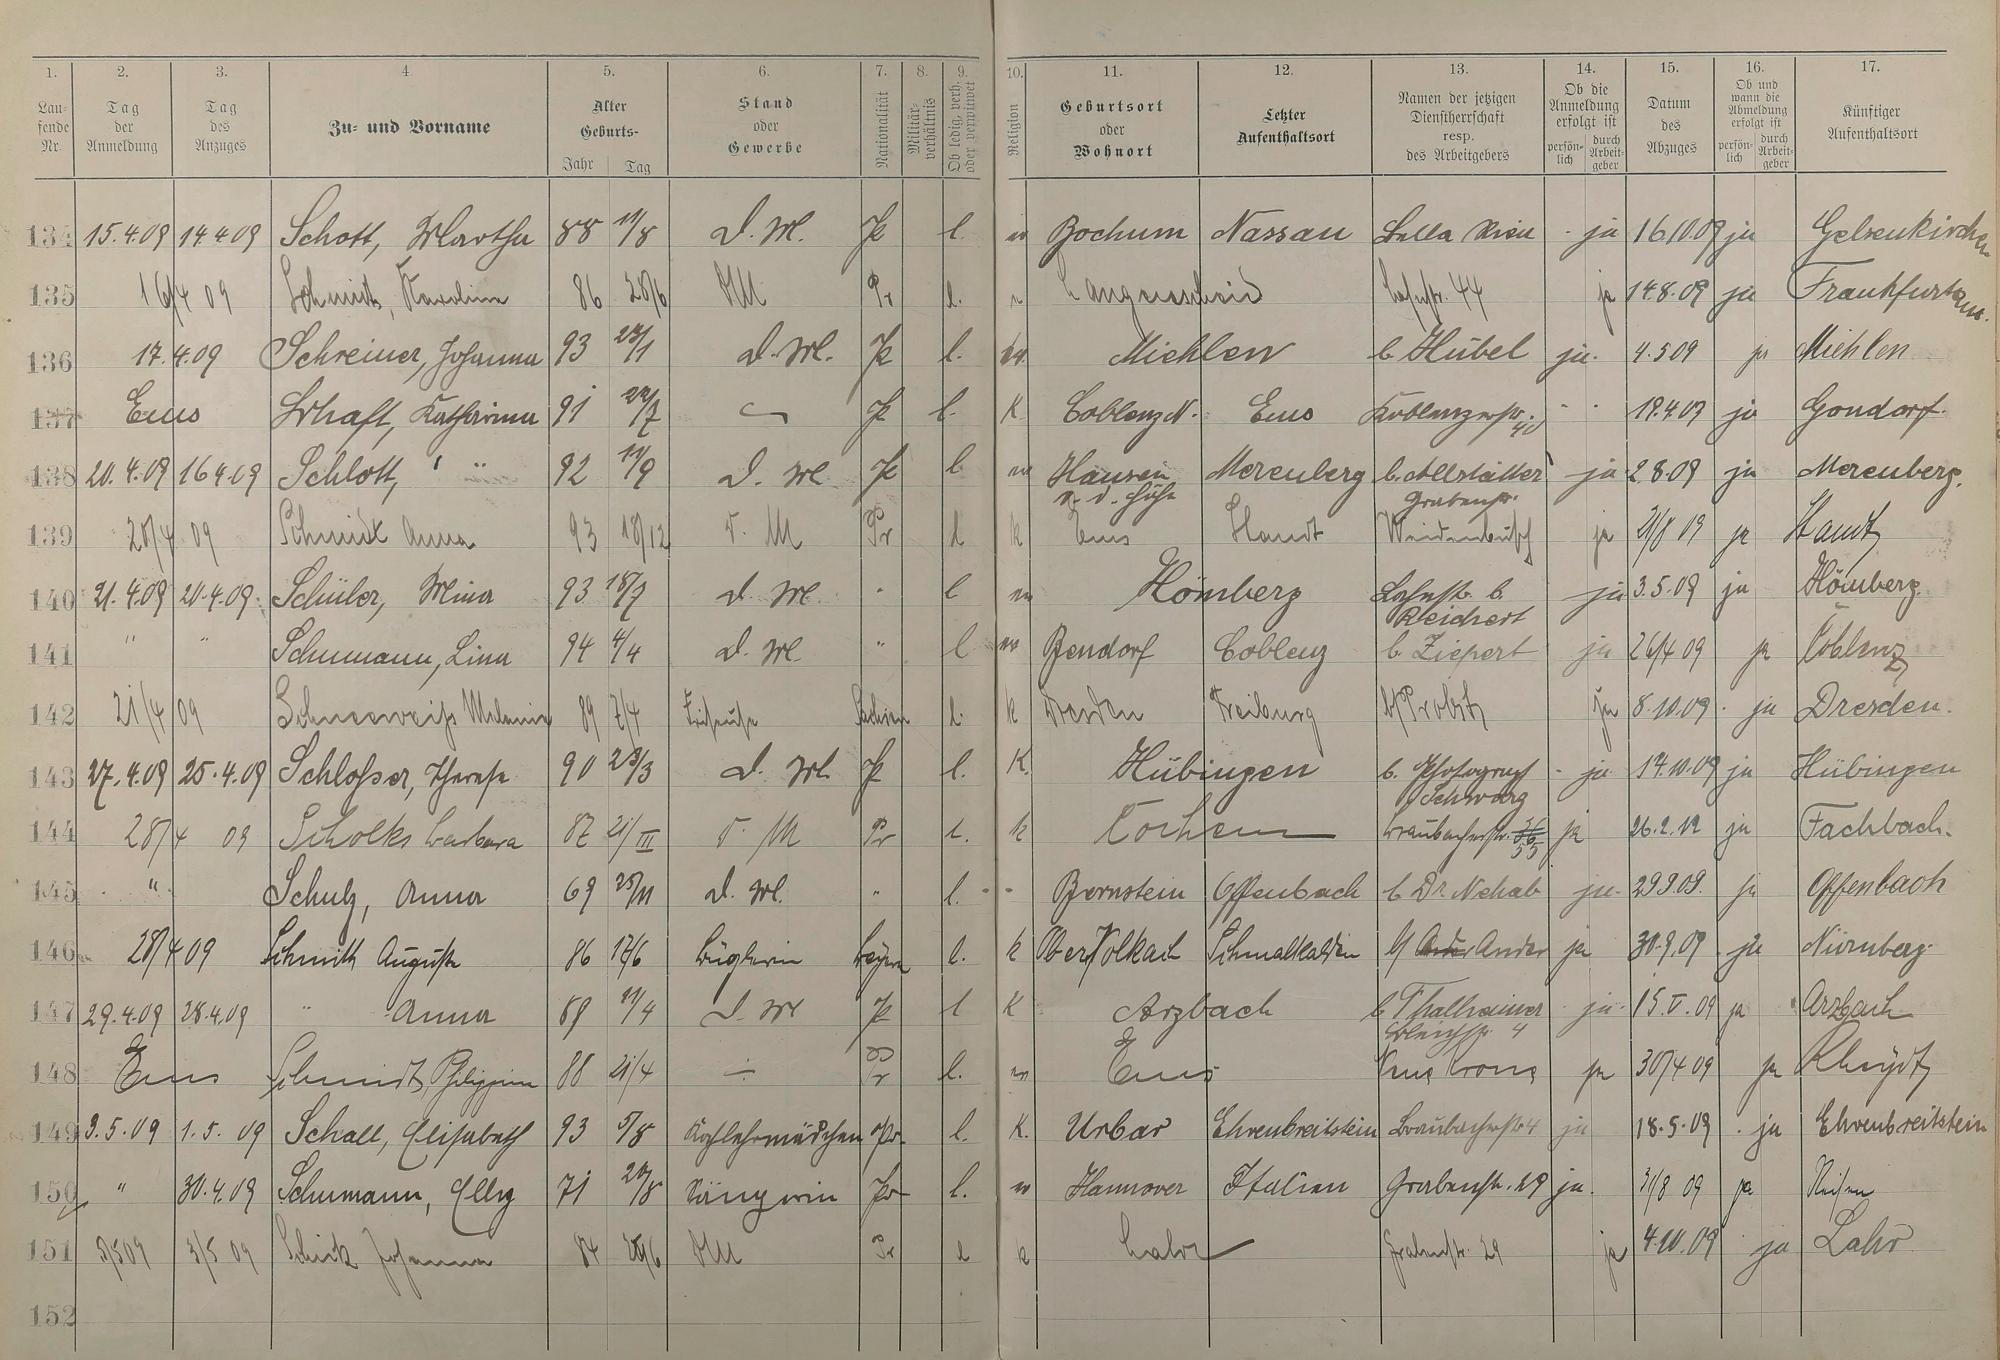 1. 2. 3. 4. 5. 6. 7. 8. 9. 10. 11. 12. 13. 14. 15. 16. 17.
Lau-fende Nr. Tag der Anmeldung Tag des Anzuges Zu- und Vorname Alter Geburts- Jahr Tag Stand oder Gewerbe Nationalität Militär-verhältnis Ob ledig, verh. oder verwitwet Religion Geburtsort oder Wohnort Letzter Aufenthaltsort Namen der jetzigen Dienstherrschaft resp. des Arbeitgebers Ob die Anmeldung erfolgt ist persön-lich durch Arbeit-geber Datum des Abzuges Ob und wann die Abmeldung erfolgt ist persön-lich durch Arbeit-geber Künftiger Aufenthaltsort
134 15.4.09 14.4.09 Schott, Martha 88 11/8 D. M. l. Bochum Nassau ja 16.10.09 ja Gelsenkirchen
135 16/4 09 Schmidt, Karoline 86 28/6 DM Pr l. Langenscheid 44 ja 14.8.09 ja Frankfurt
136 17.4.09 Schreiner, Johanna 93 23/1 D. M. l. Miehlen b. Hübel ja. 4.5.09 ja Miehlen
137 Ems Schaft, Katharina 91 22/7 l. K. Coblenz N. Ems Koblenzerstr. 40 19.4.09 ja Gondorf.
138 20.4.09 16.4.09 Schlott, " 92 11/9 D. M l Hausen v. d. Höhe Merenberg b. Allstätter Grabenstr. ja 2.8.09 ja Merenberg.
139 20/4 09 Schmidt Anna 93 18/12 D. M Pr l k Ems Staudt Weidenbusch ja 21/8 09 ja Staudt
140 21.4.09 20.4.09. Schüler, Mina 93 18/7 D. M. " l Hömberg Lahnstr. b. Reichert ja 3.5.09 ja Hömberg.
141 " " Schumann, Lina 94 4/4 D. M. " l Bendorf Coblenz b. Ziepert ja 26/4 09 ja Coblenz
142 21/4 09 Schneeweiß Melanie 89 7/4 Friseuse Sachsen l. k Dresden Freiburg b/ Probst ja 8.10.09. ja Dresden.
143 27.4.09 25.4.09 Schlosser, Therese 90 23/3 D. M. l. K. Hübingen b. Photograph Schwarz ja 14.10.09 ja Hübingen
144 28/4 09 Scholks Barbara 87 21/III D. M Pr l. k Cochem Braubacherstr. 55 ja 26.2.12 ja Fachbach.
145 " Schulz, Anna 69 25/11 D. M. " l. Bernstein Offenbach b Dr. Nehab ja. 29.9.09. ja Offenbach
146 28/4 09 Schmitt Auguste 86 17/6 Büglerin Bayern l. k Ober Volkach Schmalkalden b/ Ander ja 30.9.09 ja Nürnberg.
147 29.4.09 28.4.09 " Anna 89 11/4 D. M l K Arzbach b Thalheimer Bleichstr. 4 ja. 15.V.09 ja Arzbach
148 Ems Schmidt, Philippine 88 21/4 Pr l. Ems Krone ja 30/4 09 ja Rheydt
149 3.5.09 1.5.09 Schall, Elisabeth 93 5/8 Kochlehrmädchen Pr. l. K. Urbar Ehrenbreitstein Braubacherstr 4 ja 18.5.09 ja Ehrenbreitstein
150 " 30.4.09 Schumann, Elly 71 20/8 Sängerin Pr l. Hannover Italien Grabenstr. 29 ja. 31/8 09 ja Reisen
151 5/5 09 3/5 09 Schick Johanna 84 DM Pr l k Lahr Grabenstr. 29 ja 4.10.09 ja Lahr
152